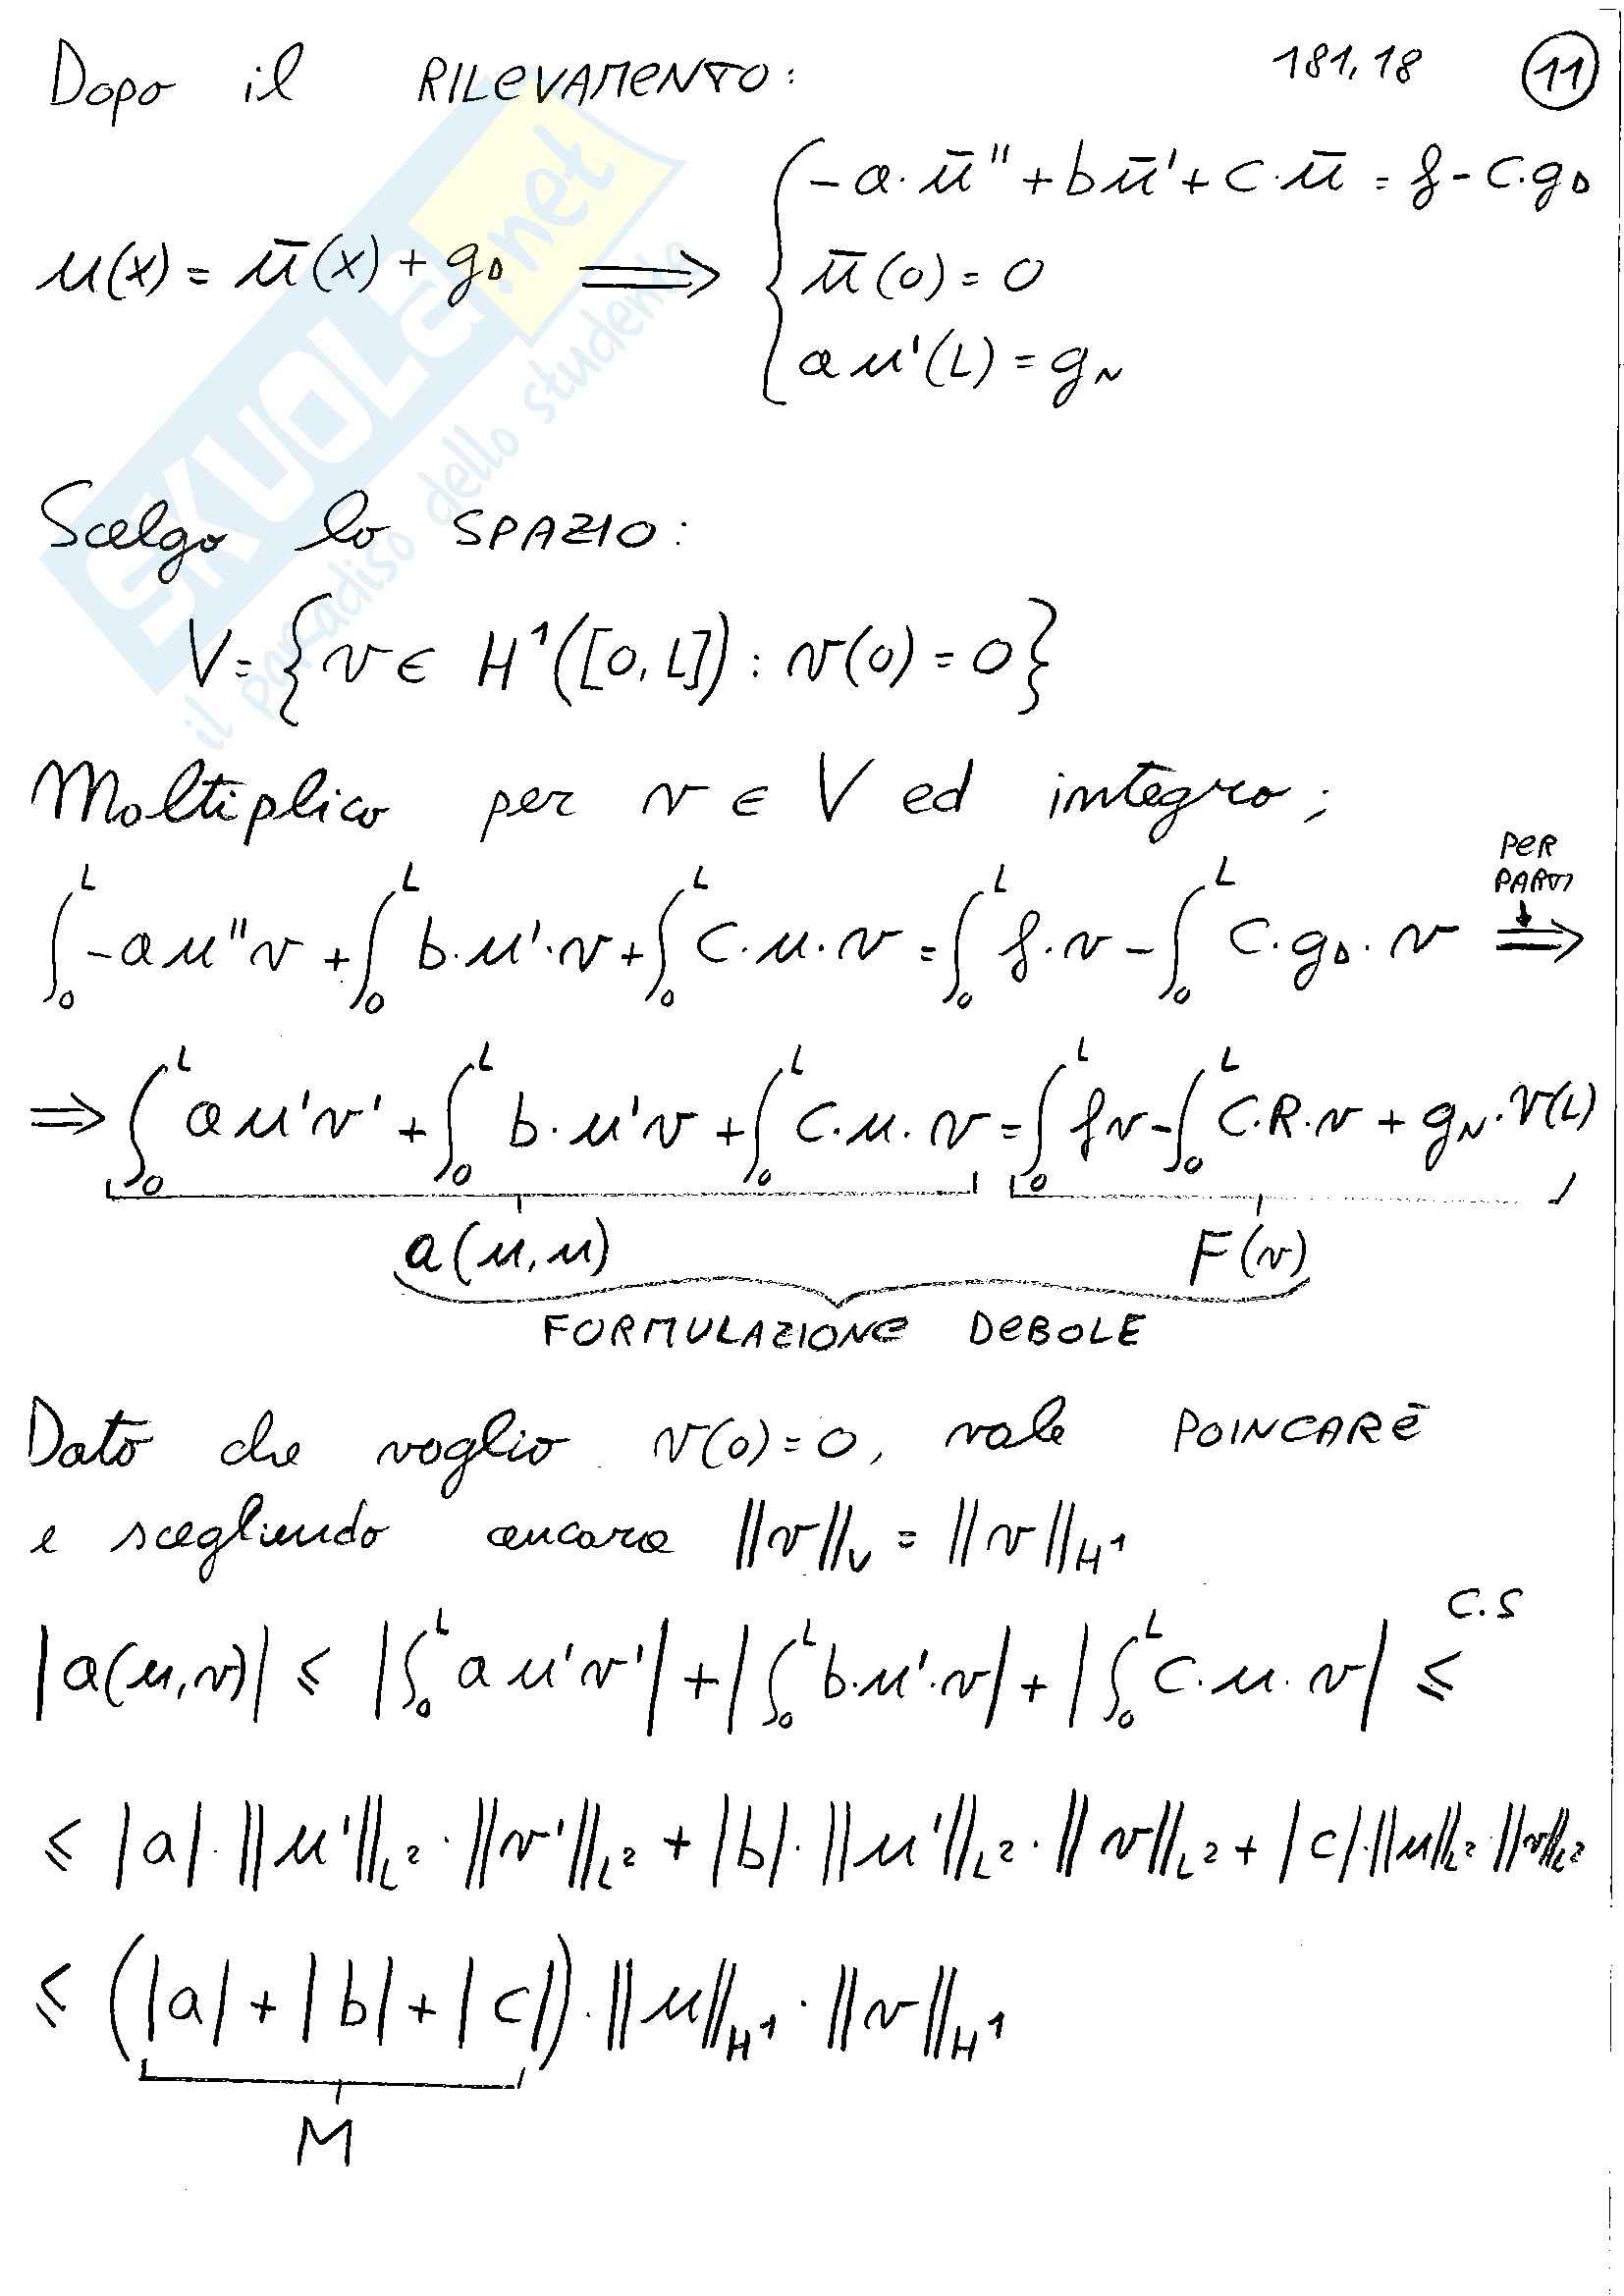 Dopo il RILEVAMENTO: 181,18 11
u(x) = ū(x) + g_D ⟹ { -a·ū'' + bū' + c·ū = f - c·g_D
ū(0) = 0
a u'(L) = g_N
Scelgo lo SPAZIO:
V = {v ∈ H¹([0,L]) : v(0) = 0}
Moltiplico per v ∈ V ed integro;
∫₀ᴸ -a u''v + ∫₀ᴸ b·u'·v + ∫₀ᴸ c·u·v = ∫₀ᴸ f·v - ∫₀ᴸ c·g_D·v ⟹ PER PARTI
⟹ ∫₀ᴸ a u'v' + ∫₀ᴸ b·u'v + ∫₀ᴸ c·u·v = ∫₀ᴸ fv - ∫₀ᴸ C·R·v + g_N·v(L)
a(u,u) F(v)
FORMULAZIONE DEBOLE
Dato che voglio v(0)=0, vale POINCARÈ
e scegliendo ancora ||v||_V = ||v||_H¹
|a(u,v)| ≤ |∫₀ᴸ a u'v'| + |∫₀ᴸ b·u'·v| + |∫₀ᴸ c·u·v| ≤ C.S
≤ |a|·||u'||_L²·||v'||_L² + |b|·||u'||_L²·||v||_L² + |c|·||u||_L²·||v||_L²
≤ (|a| + |b| + |c|)·||u||_H¹·||v||_H¹
M
SKUOLA.net
il paradiso dello studente